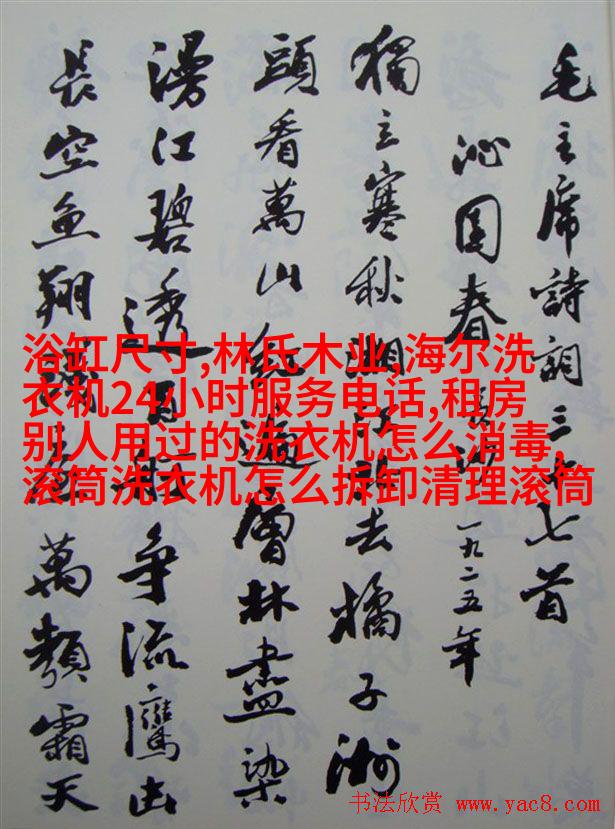 毛主席詩詞三十七首
沁園春 長沙 一九二五年
獨立寒秋湘江北去橘子洲
頭看萬山紅遍層林盡染
漫江碧透百舸争流鷹击
長空魚翔淺底萬類霜天
浴缸尺寸,林氏木业,海尔洗
衣机24小时服务电话,租房
别人用过的洗衣机怎么消毒,
滚筒洗衣机怎么拆卸清理滚筒
书法欣赏 www.yac8.com